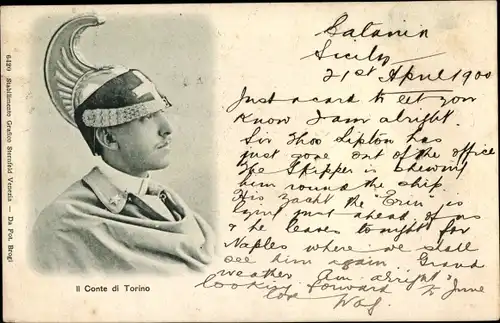 6420 Stabilimento Grafico Sternfeld Venezia — Da Fot. Brogi
Il Conte di Torino
Catania
Sicily
21st April 1900
Just a card to let you
know I am alright.
Sir Thos Lipton has
just gone out of the office
The Skipper is shewing
him round the ship.
His yacht the "Erin" is
lying just ahead of us
& he leaves tonight for
Naples where we shall
see him again. Grand
weather Am alright &
looking forward to June
love